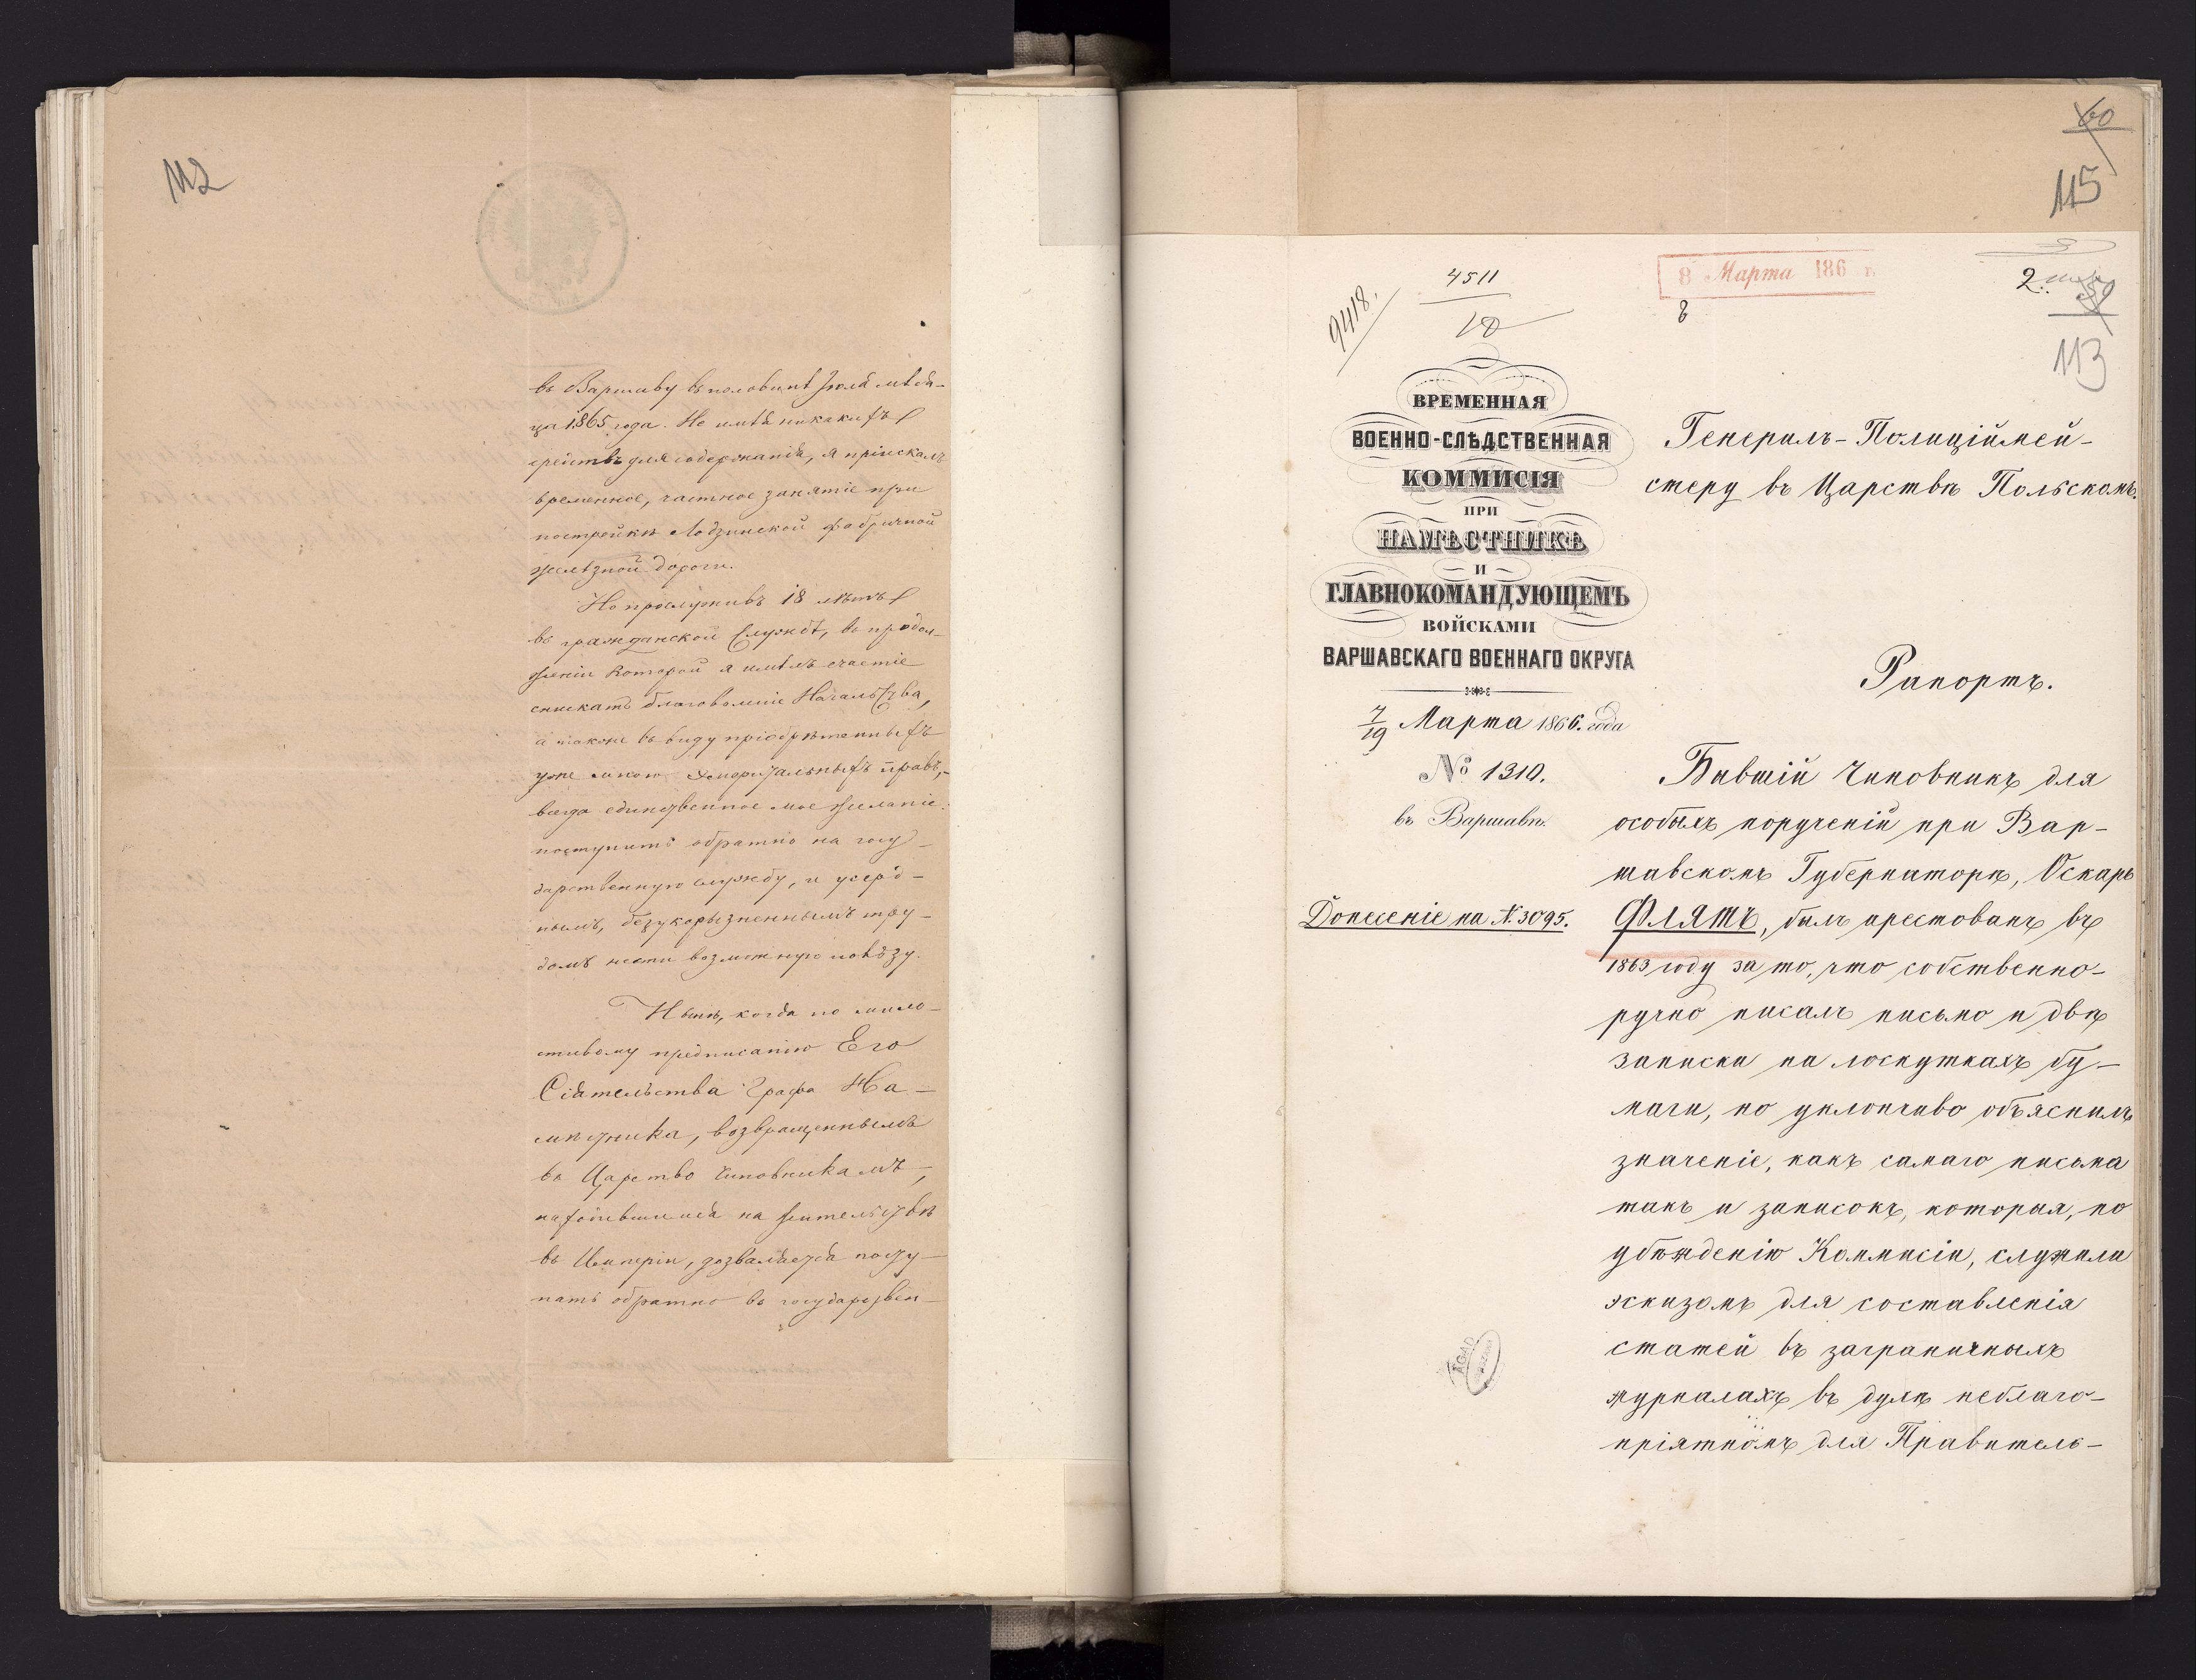 112
въ Варшаву въ половинѣ Іюля мѣся-
ца 1865 года. Не имѣя никакихъ
средствъ для содержанія, я пріискалъ
временное, частное занятіе при
постройкѣ Лодзинской фабричной
желѣзной дороги.
Но прослуживъ 18 лѣтъ
въ гражданской Службѣ, въ продол-
женіи которой я имѣлъ счастіе
снискать благоволеніе Начальства,
а также въ виду пріобрѣтенныхъ
уже мною Эмеритальныхъ правъ,-
всегда единственное мое желаніе:
поступить обратно на госу-
дарственную службу, и усерд-
нымъ, безукоризненнымъ тру-
домъ нести возможную пользу.
Нынѣ, когда по мило-
стивому предписанію Его
Сіятельства Графа На-
мѣстника, возвращеннымъ
въ Царство Чиновникамъ,
находившимся на жительствѣ
въ Имперіи, дозваляется посту-
пать обратно въ государствен-
60
115
4511
10
9418.
8 Марта 186
8
2
50
113
ВРЕМЕННАЯ
ВОЕННО-СЛѢДСТВЕННАЯ
КОММИСІЯ
ПРИ
НАМѢСТНИКѢ
И
ГЛАВНОКОМАНДУЮЩЕМЪ
ВОЙСКАМИ
ВАРШАВСКАГО ВОЕННАГО ОКРУГА
7/19 Марта 1866. года
№ 1310.
въ Варшавѣ.
Донесеніе на №. 3095.
Генералъ-Полиціймей-
стеру въ Царствѣ Польскомъ.
Рапортъ.
Бывшій Чиновникъ для
особыхъ порученій при Вар-
шавскомъ Губернаторѣ, Оскаръ
Флятъ, былъ арестованъ въ
1863 году за то, что собственно-
ручно писалъ письмо и двѣ
записки на лоскуткахъ бу-
маги, но уклончиво объяснилъ
значеніе, какъ самаго письма
такъ и записокъ, которыя, по
убѣжденію Коммисіи, служили
эскизомъ для составленія
статей въ заграничныхъ
журналахъ въ духѣ неблаго-
пріятномъ для Правитель-
AGAD